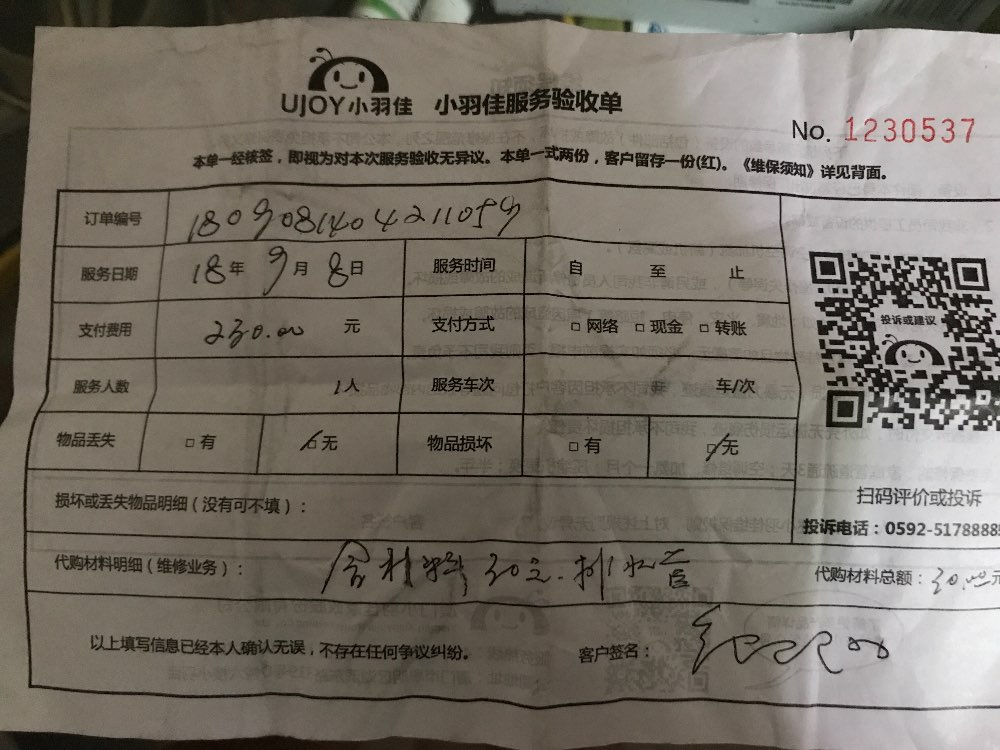 UJOY小羽佳 小羽佳服务验收单
No. 1230537
本单一经核签，即视为对本次服务验收无异议。本单一式两份，客户留存一份(红)。《维保须知》详见背面。
订单编号 1809081404211059
服务日期 18年 9月 8日 服务时间 自 至 止
支付费用 230.00 元 支付方式 □网络 □现金 □转账
投诉或建议
服务人数 1人 服务车次 车/次
物品丢失 □有 □无 物品损坏 □有 □无
损坏或丢失物品明细（没有可不填）：
扫码评价或投诉
投诉电话：0592-5178888
代购材料明细（维修业务）： 含材料30元.排水管 代购材料总额：30.00元
以上填写信息已经本人确认无误，不存在任何争议纠纷。 客户签名：